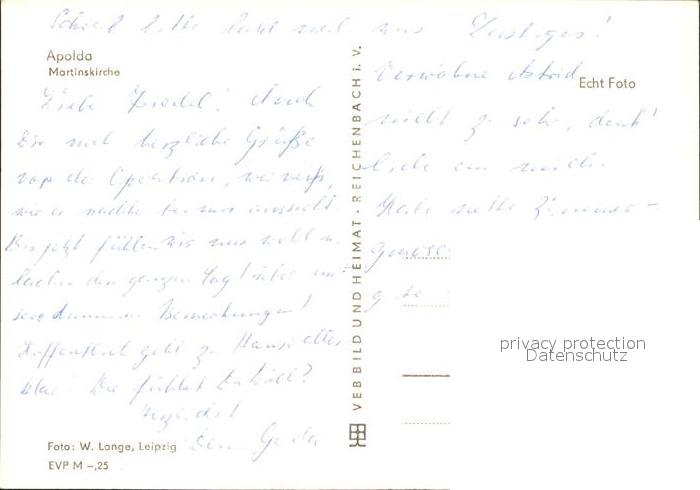 Schreib bitte bald mal was Lustiges!
Apolda
Martinskirche
Echt Foto
Liebe! Auch
Dir mal herzliche Grüße
vor der Operation, wer weiß,
wie es nachher bei uns aussieht.
Bis jetzt fühlen wir uns wohl u.
lachen den ganzen Tag! über
dummen Bemerkungen!
Hoffentlich geht zu Hause alles
klar! Wie fühlst Du Dich?
Herzlichst
Deine Gerda
Verwöhne Astrid
nicht zu sehr, denk!
liebe an mich.
Habe nette Zimmer-
VEB BILD UND HEIMAT · REICHENBACH i. V.
privacy protection
Datenschutz
Foto: W. Lange, Leipzig
EVP M -,25